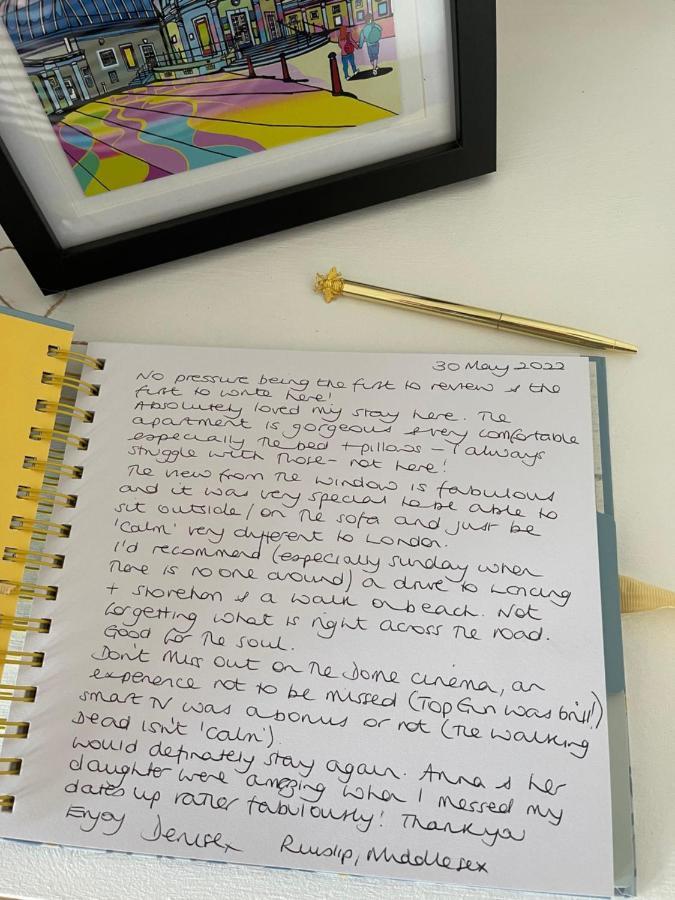 30 May 2022
No pressure being the first to review & the
first to write here!
Absolutely loved my stay here. The
apartment is gorgeous & very comfortable
especially the bed + pillows - I always
struggle with those - not here!
The view from the window is fabulous
and it was very special to be able to
sit outside / on the sofa and just be
'calm' very different to London.
I'd recommend (especially Sunday when
there is no one around) a drive to Lancing
+ Shoreham & a walk on beach. Not
forgetting what is right across the road.
Good for the soul.
Don't miss out on the Dome cinema, an
experience not to be missed (Top Gun was brill!)
Smart TV was a bonus or not (The Walking
Dead isn't 'calm').
Would definately stay again. Anna & her
daughter were amazing when I messed my
dates up rather fabulously! Thankyou
Enjoy Denisex Ruislip, Middlesex